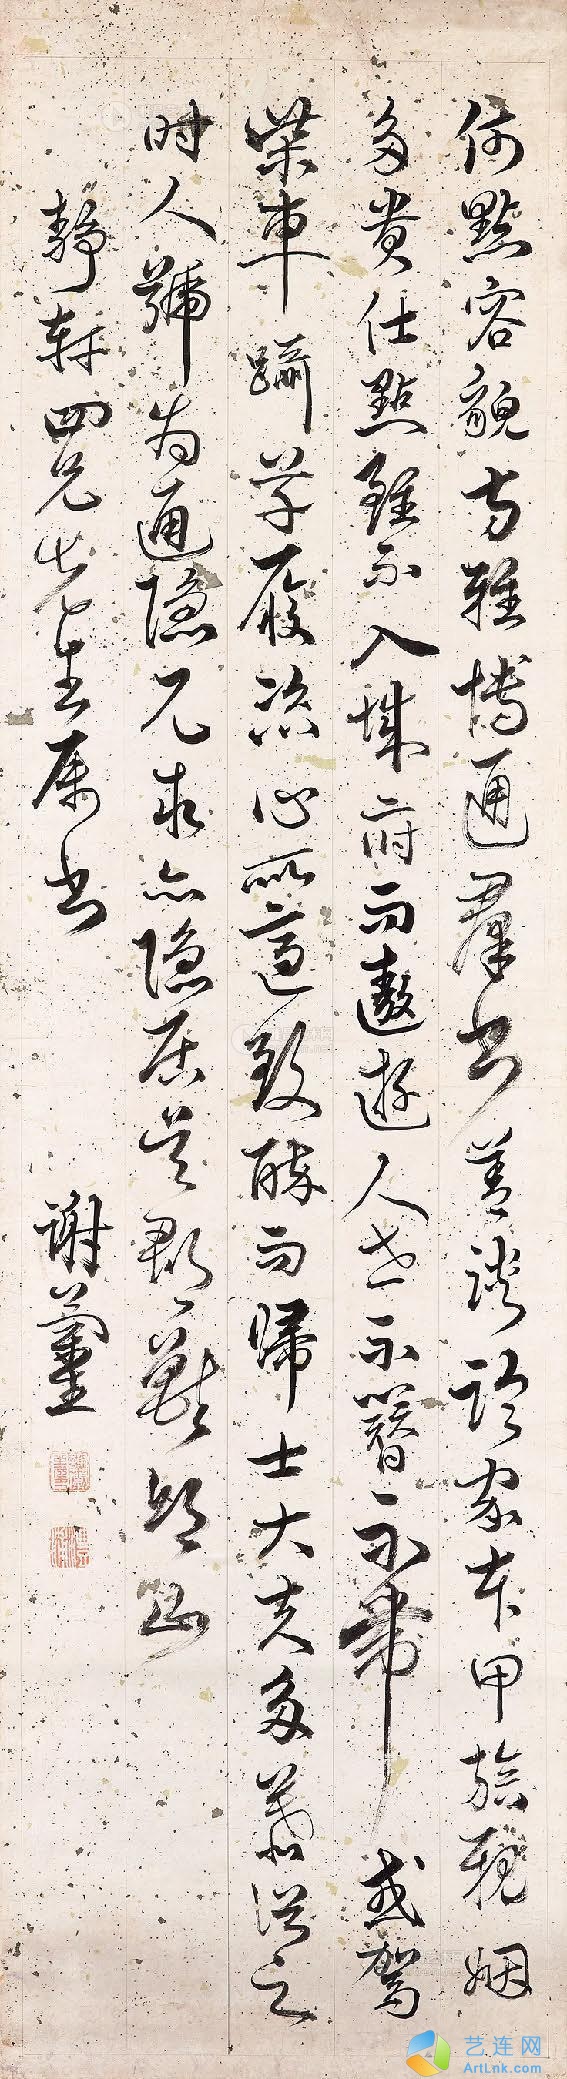 何點容貌方雅博通羣書善談論家本甲族親姻
多貴仕點雖不入城府而遨遊人世不簪不帶或駕
柴車躡草履恣心所適致醉而歸士大夫多慕從之
時人號為通隱兄求亦隱居吳郡獸邱山
靜軒四兄先生屬書 謝蘭生
艺连网
ArtLnk.com